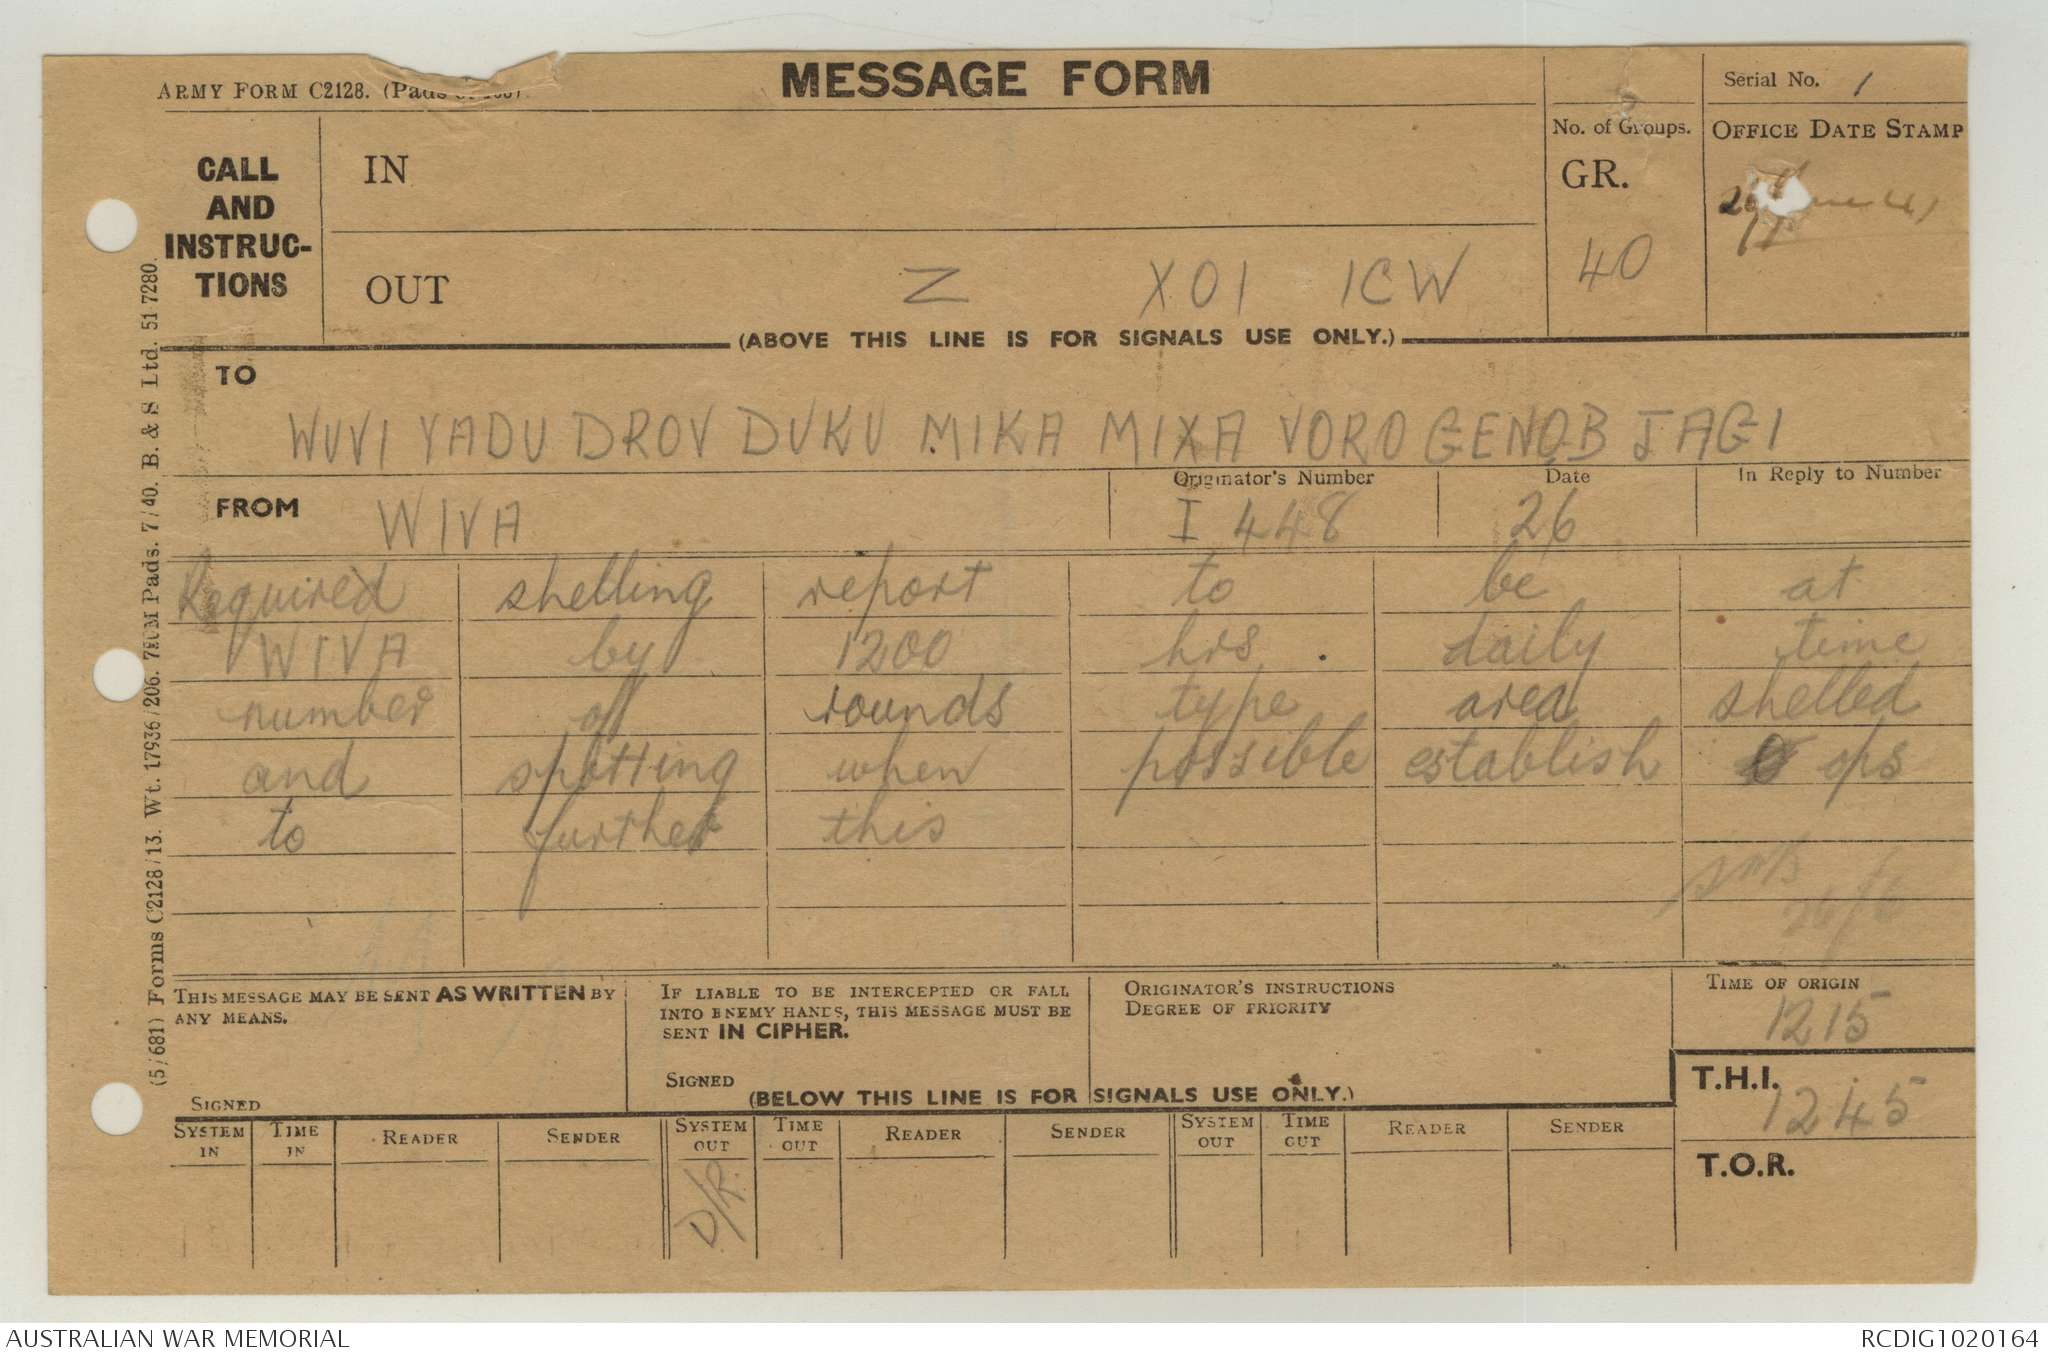 ARMY FORM C2128. (Pads of 100)
MESSAGE FORM
Serial No. 1
CALL AND INSTRUCTIONS
IN
No. of Groups.
GR.
40
OFFICE DATE STAMP
OUT Z XO1 ICW
(ABOVE THIS LINE IS FOR SIGNALS USE ONLY.)
TO
WUVI YADU DROV DUKU MIKA MIXA VORO GENOB JAGI
FROM WIVA
Originator's Number
I 448
Date
26
In Reply to Number
Required shelling report to be at
WIVA by 1200 hrs . daily time
number of rounds type area shelled
and spotting when possible establish ops
to further this
26/6
THIS MESSAGE MAY BE SENT AS WRITTEN BY
ANY MEANS.
SIGNED
IF LIABLE TO BE INTERCEPTED OR FALL
INTO ENEMY HANDS, THIS MESSAGE MUST BE
SENT IN CIPHER.
SIGNED
ORIGINATOR'S INSTRUCTIONS
DEGREE OF PRIORITY
TIME OF ORIGIN
1215
T.H.I.
1245
T.O.R.
(BELOW THIS LINE IS FOR SIGNALS USE ONLY.)
SYSTEM IN TIME IN READER SENDER SYSTEM OUT TIME OUT READER SENDER SYSTEM OUT TIME OUT READER SENDER
D/R.
(5/681) Forms C2128/13. Wt. 17936/206. 7HUM Pads. 7/40. B. & S Ltd. 51 7280.
AUSTRALIAN WAR MEMORIAL
RCDIG1020164